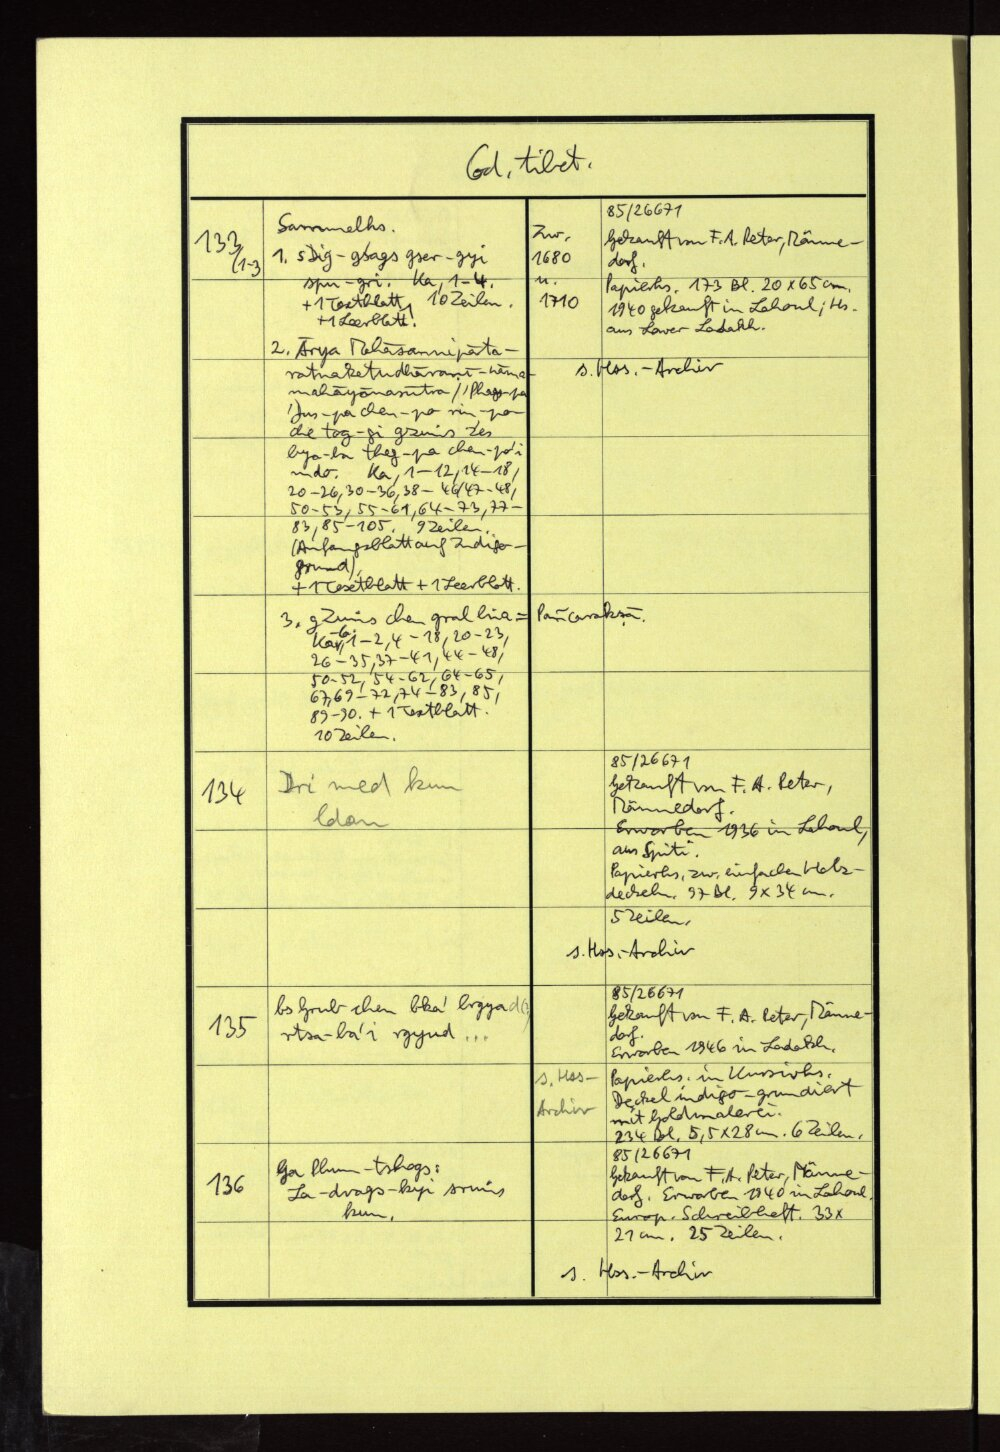 Cod. tibet.
133
(1-3
Sammelhs.
1. sDig-gśags gser-gyi
spu-gri. Ka, 1-4.
+1 Textblatt, 10 Zeilen.
+1 Leerblatt.
2. Ārya Mahāsannipāta-
ratnaketudhāraṇī-nāma-
mahāyānasūtra // 'Phags-pa
'Dus-pa chen-po rin-po-
che tog-gi gzuṅs źes
bya-ba theg-pa chen-po'i
mdo. Ka, 1-12, 14-18,
20-26, 30-36, 38-46, 47-48,
50-53, 55-61, 64-73, 77-
83, 85-105. 9 Zeilen.
(Anfangsblatt auf Indigo-
grund)
+ 1 Textblatt + 1 Leerblatt.
3. gZuṅs chen graṅ lṅa = Pañcarakṣā.
1-2, 4-18, 20-23,
26-35, 37-41, 44-48,
50-52, 54-62, 64-65,
67, 69-72, 74-83, 85,
89-90. + 1 Textblatt.
10 Zeilen.
Zw.
1680
u.
1710
85/26671
Gekauft von F. A. Peter, Männe-
dorf.
Papierhs. 173 Bl. 20 x 65 cm.
1940 gekauft in Lahoul; Hs.
aus Lower Ladakh.
s. Hss.-Archiv
134
Dri med kun
ldan
85/26671
Gekauft von F. A. Peter,
Männedorf.
Erworben 1936 in Lahoul,
aus Spiti.
Papierhs. zw. einfachen Holz-
deckeln. 97 Bl. 9 x 34 cm.
5 Zeilen.
s. Hss.-Archiv
135
bsGrub chen bka' brgyad(?)
rtsa-ba'i rgyud ...
s. Hss-
Archiv
85/26671
Gekauft von F. A. Peter, Männe-
dorf.
Erworben 1946 in Ladakh.
Papierhs. in Kursivhs.
Deckel indigo-grundiert
mit Goldmalerei.
234 Bl. 5,5 x 28 cm. 6 Zeilen.
136
Ga Phun-tshogs:
La-dvags-kyi sruṅs
kun.
85/26671
Gekauft von F. A. Peter, Männe-
dorf. Erworben 1940 in Lahoul.
Europ. Schreibheft. 33 x
21 cm. 25 Zeilen.
s. Hss.-Archiv